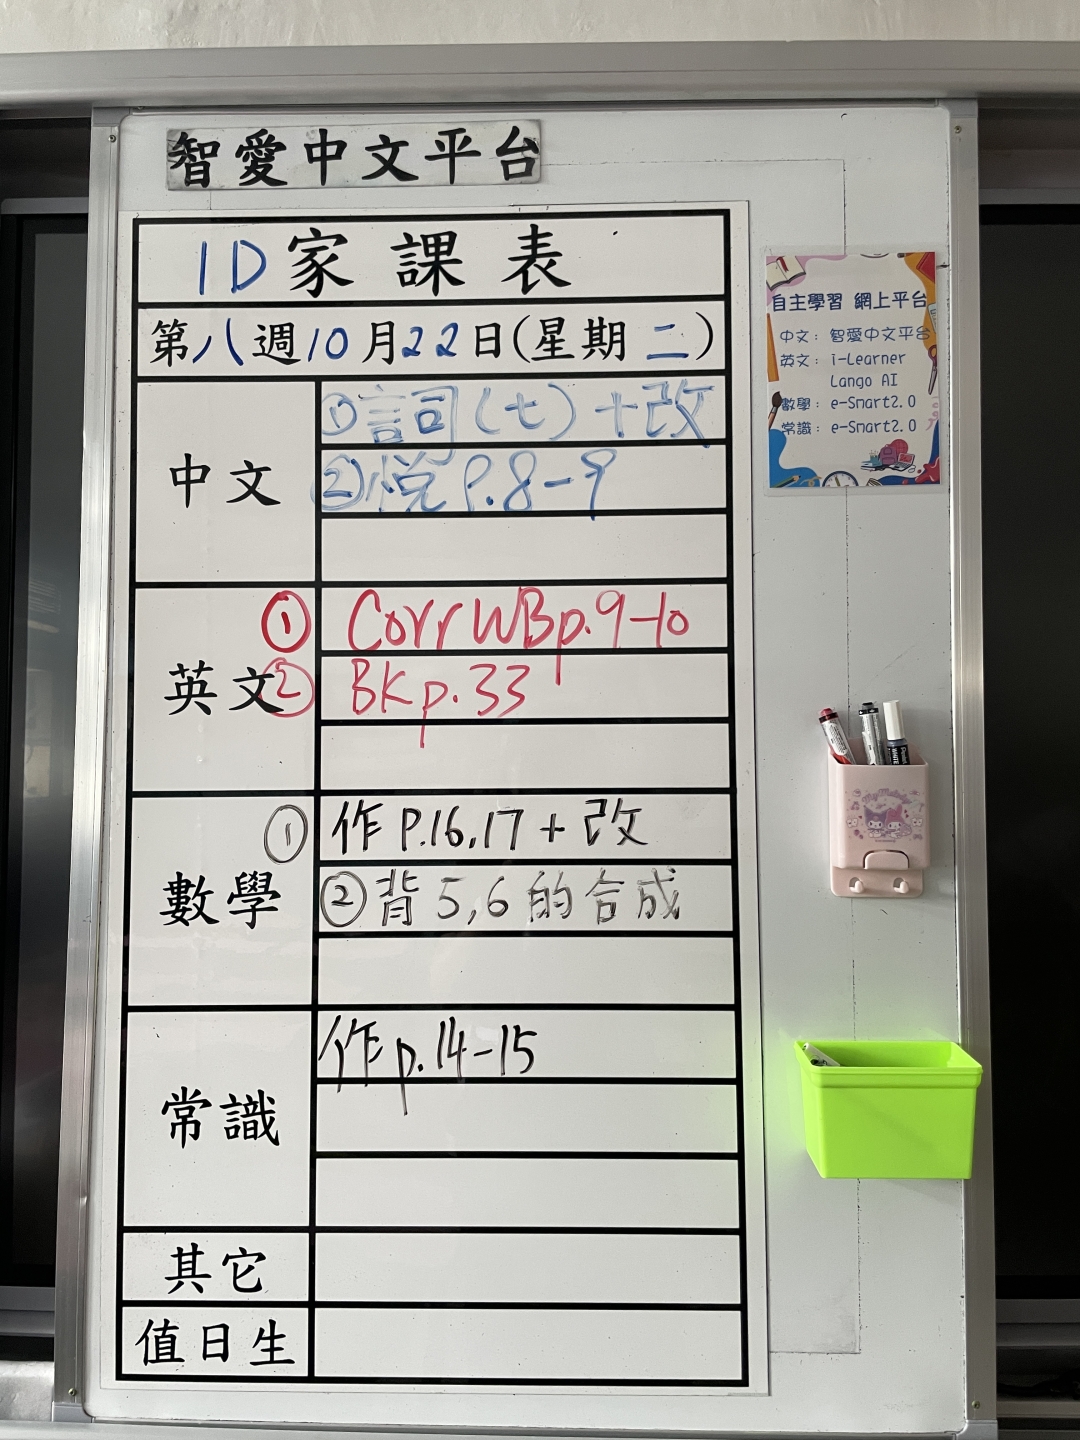 智愛中文平台
1D家課表
第八週10月22日(星期二)
中文
①詞(七)+改
②悅P.8-9
英文
① Corr WB p.9-10
② BK p.33
數學
① 作P.16,17+改
②背5,6的合成
常識
作p.14-15
其它
值日生
自主學習 網上平台
中文: 智愛中文平台
英文: i-Learner
Lango AI
數學: e-Smart2.0
常識: e-Smart2.0